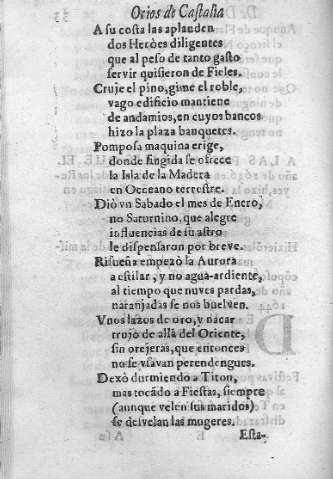 Ocios de Castalia
A su costa las aplauden
dos Heròes diligentes
que al peso de tanto gasto
servir quisieron de Fieles.
Cruje el pino, gime el roble,
vago edificio mantiene
de andamios, en cuyos bancos
hizo la plaza banquetes.
Pomposa maquina erige,
donde fingida se ofrece
la Isla de la Madera
en Occeano terrestre.
Diò vn Sabado el mes de Enero,
no Saturnino, que alegre
influencias de su astro
le dispensaron por breve.
Risueña empezò la Aurora
a estilar, y no agua-ardiente,
al tiempo que nuves pardas,
naranjadas se nos buelven.
Vnos lazos de oro, y nacar
trujo de allà del Oriente,
sin orejeras, que entonces
no se vsavan perendengues.
Dexò durmiendo a Titon,
mas tocãdo a Fiestas, siempre
(aunque velen sus maridos)
se desvelan las mugeres.
Esta-